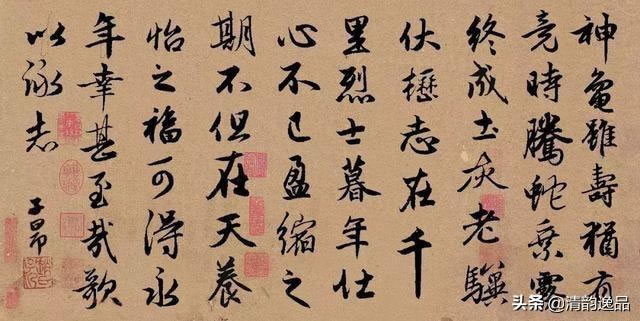 神龜雖壽猶有
竟時騰蛇乘霧
終成土灰老驥
伏櫪志在千
里烈士暮年壮
心不已盈縮之
期不但在天養
怡之福可得永
年幸甚至哉歌
以詠志
子昂
头条 @清韵逸品